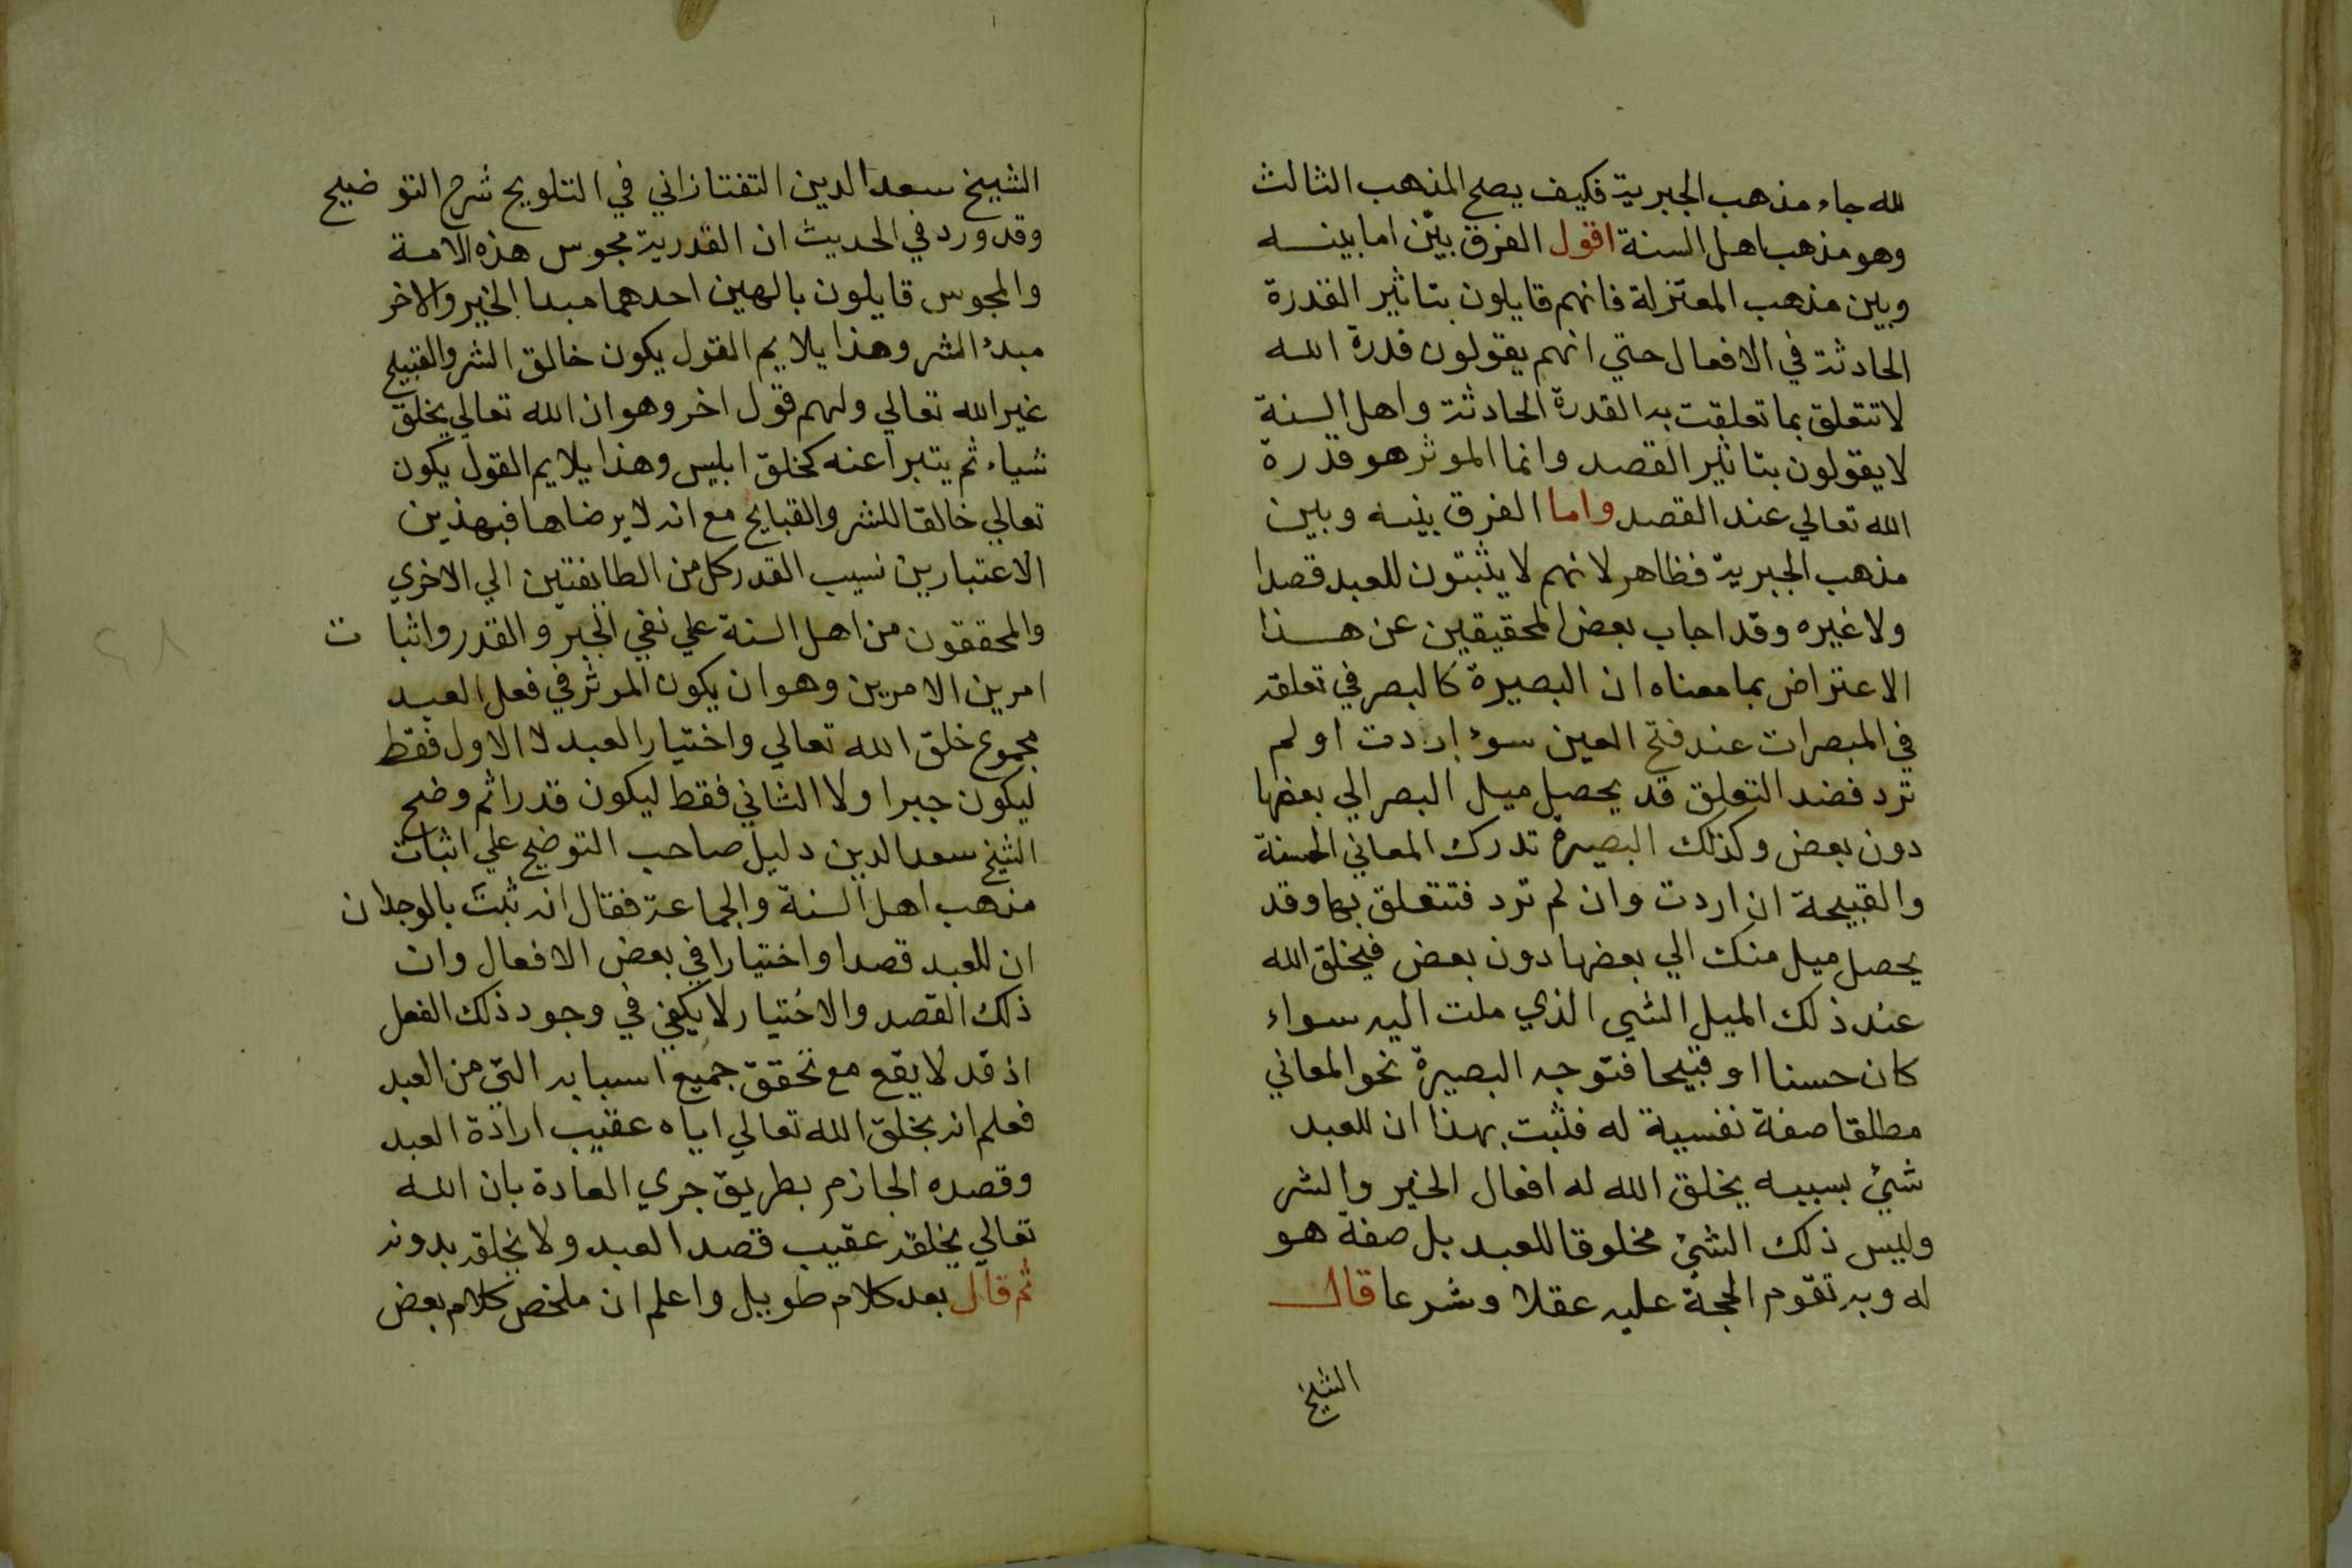 لله جاء مذهب الجبرية فكيف يصح المذهب الثالث
وهو مذهب اهل السنة اقول الفرق بيّن اما بينه
وبين مذهب المعتزلة فانهم قايلون بتاثير القدرة
الحادثة في الافعال حتي انهم يقولون قدرة الله
لا تتعلق بما تعلقت به القدرة الحادثة واهل السنة
لا يقولون بتاثير القصد وانما الموثر هو قدرة
الله تعالي عند القصد واما الفرق بينه وبين
مذهب الجبرية فظاهر لانهم لا يثبتون للعبد قصدا
ولا غيره وقد اجاب بعض المحقيقين عن هذا
الاعتراض بما معناه ان البصيرة كالبصر في تعلقه
في المبصرات عند فتح العين سوء اردت او لم
ترد فضد التعلق قد يحصل ميل البصر الي بعضها
دون بعض وكذلك البصيرة تدرك المعاني الحسنة
والقبيحة ان اردت وان لم ترد فتتعلق بها وقد
يحصل ميل منك الي بعضها دون بعض فيخلق الله
عند ذلك الميل الشي الذي ملت اليه سواء
كان حسنا او قبيحا فتوجه البصيرة نحو المعاني
مطلقا صفة نفسية له فثبت بهذا ان للعبد
شيئ بسببه يخلق الله له افعال الخير والشر
وليس ذلك الشئ مخلوقا للعبد بل صفة هو
له وبه تقوم الحجة عليه عقلا وشرعا قال
الشيخ
الشيخ سعد الدين التفتازاني في التلويح شرح التوضيح
وقد ورد في الحديث ان القدرية مجوس هذه الامة
والمجوس قايلون بالهين احدهما مبدا الخير والاخر
مبدء الشر وهذا يلايم القول يكون خالق الشر والقبيح
غير الله تعالي ولهم قول اخر وهو ان الله تعالي يخلق
شياء ثم يتبرا عنه كخلق ابليس وهذا يلايم القول يكون
تعالي خالقا للشر والقبايح مع انه لا يرضاها فبهذين
الاعتبارين نسيب القدر كل من الطايفتين الي الاخري
والمحققون من اهل السنة علي نفي الجبر والقدر واثبات
امرين الامرين وهو ان يكون الموثر في فعل العبد
مجموع خلق الله تعالي واختيار العبد لا الاول فقط
ليكون جبرا ولا الثاني فقط ليكون قدرا ثم وضح
الشيخ سعد الدين دليل صاحب التوضيح علي اثبات
مذهب اهل السنة والجماعة فقال انه ثبت بالوجدان
ان للعبد قصدا واختيارا في بعض الافعال وان
ذلك القصد والاختيار لا يكفي في وجود ذلك الفعل
اذ قد لا يقع مع تحقق جميع اسبابه التي من العبد
فعلم انه بخلق الله تعالي اياه عقيب ارادة العبد
وقصده الجازم بطريق جري العادة بان الله
تعالي يخلقه عقيب قصد العبد ولا يخلقه بدونه
ثم قال بعد كلام طويل واعلم ان ملخص كلام بعض
٢٨